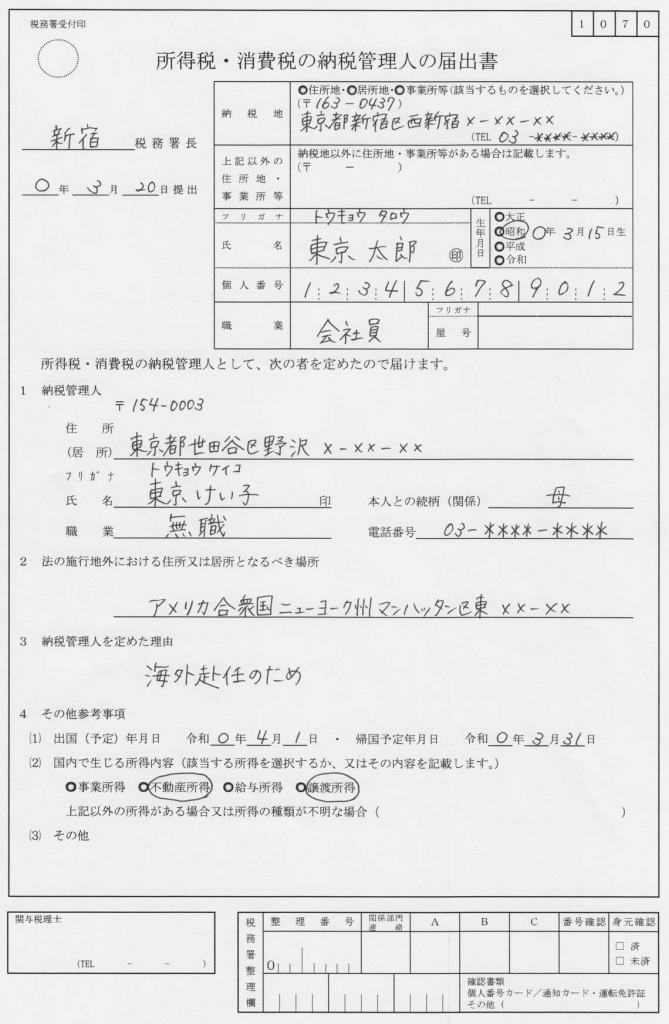 税務署受付印
1070
所得税・消費税の納税管理人の届出書
新宿 税務署長
0年3月20日提出
納税地
住所地・居所地・事業所等(該当するものを選択してください。)
(〒163-0437)
東京都新宿区西新宿x-xx-xx
(TEL 03-****-****)
上記以外の住所地・事業所等
納税地以外に住所地・事業所等がある場合は記載します。
(〒 - )
(TEL - - )
フリガナ トウキョウ タロウ
氏名 東京 太郎 ㊞
生年月日
大正
昭和 0年3月15日生
平成
令和
個人番号 1234 5678 9012
職業 会社員
フリガナ
屋号
所得税・消費税の納税管理人として、次の者を定めたので届けます。
1 納税管理人
〒154-0003
住所
(居所) 東京都世田谷区野沢 x-xx-xx
フリガナ トウキョウ ケイコ
氏名 東京 けい子 印 本人との続柄(関係) 母
職業 無職 電話番号 03-****-****
2 法の施行地外における住所又は居所となるべき場所
アメリカ合衆国ニューヨーク州マンハッタン区東 xx-xx
3 納税管理人を定めた理由
海外赴任のため
4 その他参考事項
(1) 出国(予定)年月日 令和0年4月1日 ・ 帰国予定年月日 令和0年3月31日
(2) 国内で生じる所得内容(該当する所得を選択するか、又はその内容を記載します。)
事業所得 不動産所得 給与所得 譲渡所得
上記以外の所得がある場合又は所得の種類が不明な場合( )
(3) その他
関与税理士
(TEL - - )
税務署整理欄
整理番号 関係部門連絡 A B C 番号確認 身元確認
0
□ 済
□ 未済
確認書類
個人番号カード/通知カード・運転免許証
その他( )